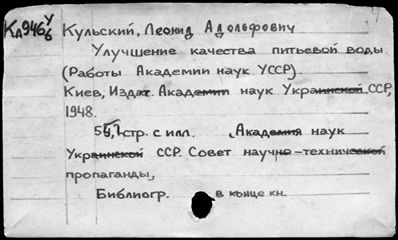 Кл946 У/6 Кульский, Леонид Адольфович
Улучшение качества питьевой воды.
(Работы Академии наук УССР).
Киев, Издат. Академии наук Украинской ССР,
1948.
стр. с илл. Академия наук
Украинской ССР. Совет научно-технической
пропаганды,
Библиогр. в конце кн.